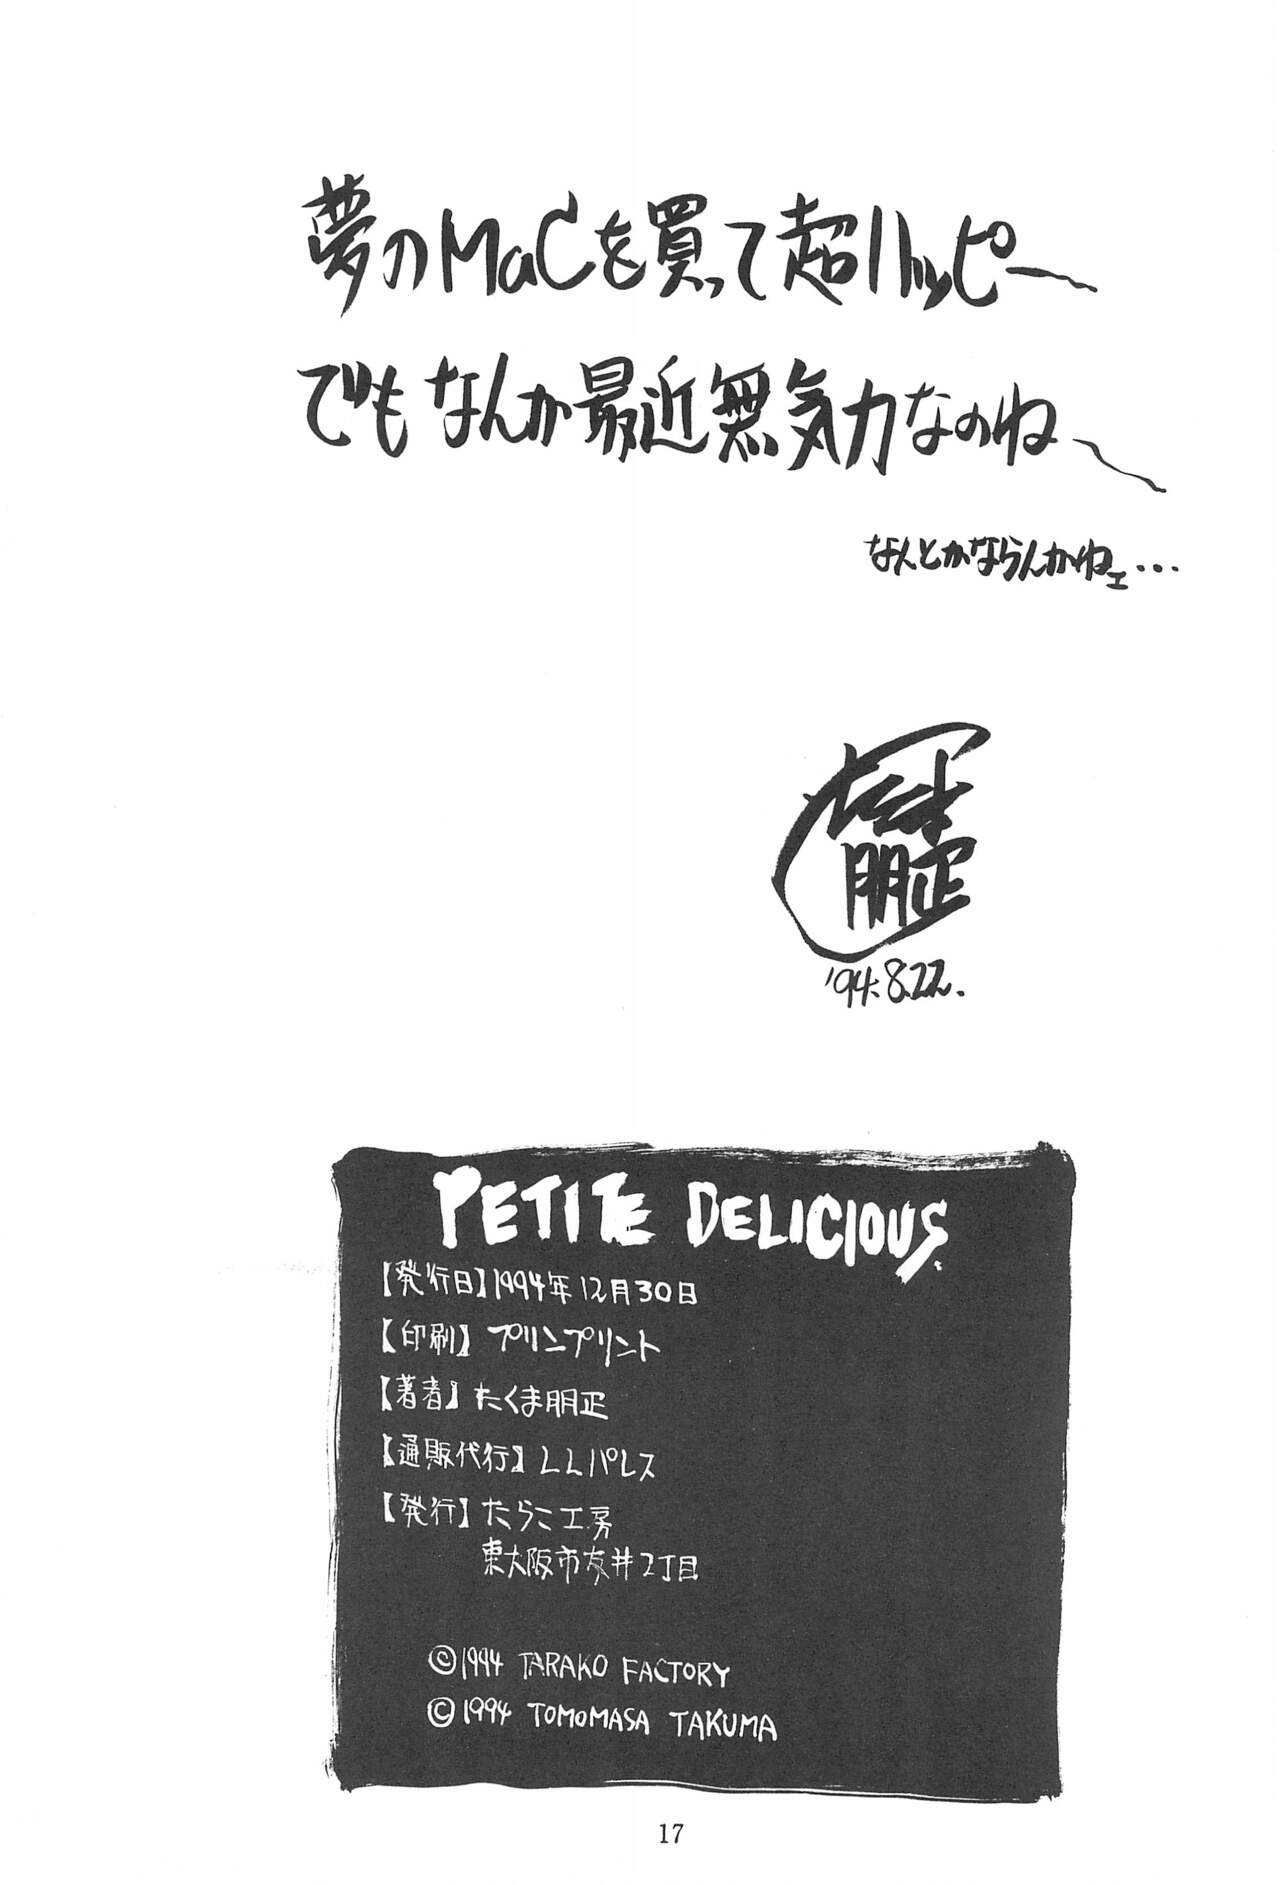 夢のMaCを買って超ハッピー〜
でもなんか最近無気力なのね〜
なんとかならんかねェ・・・
たくま
朋正
'94.8.22.
PETITE DELICIOUS
【発行日】1994年12月30日
【印刷】プリンプリント
【著者】たくま朋正
【通販代行】LLパレス
【発行】たらこ工房
東大阪市友井2丁目
©1994 TARAKO FACTORY
©1994 TOMOMASA TAKUMA
17